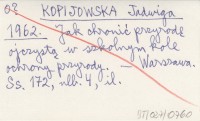 KOPIJOWSKA Jadwiga
1962. Jak chronić przyrodę
ojczystą w szkolnym kole
ochrony przyrody. — Warszawa.
Ss. 172, nlb. 4, il.